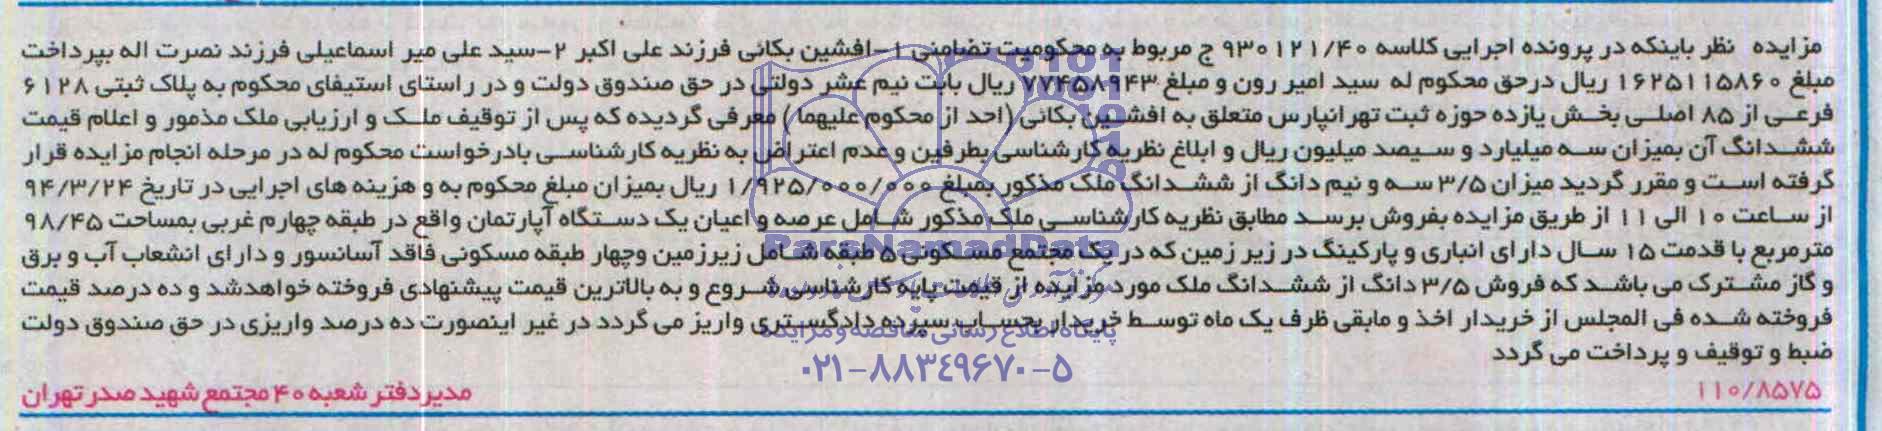 مزایده نظر باینکه در پرونده اجرایی کلاسه ۹۳۰۱۲۱/۴۰ ج مربوط به محکومیت تضامنی ۱-افشین بکائی فرزند علی اکبر ۲-سید علی میر اسماعیلی فرزند نصرت اله بپرداخت
مبلغ ۱۶۲۵۱۱۵۸۶۰ ریال درحق محکوم له سید امیر رون و مبلغ ۷۷۴۵۸۹۴۳ ریال بابت نیم عشر دولتی در حق صندوق دولت و در راستای استیفای محکوم به پلاک ثبتی ۶۱۲۸
فرعی از ۸۵ اصلی بخش یازده حوزه ثبت تهرانپارس متعلق به افشین بکائی (احد از محکوم علیهما) معرفی گردیده که پس از توقیف ملک و ارزیابی ملک مذمور و اعلام قیمت
ششدانگ آن بمیزان سه میلیارد و سیصد میلیون ریال و ابلاغ نظریه کارشناسی بطرفین و عدم اعتراض به نظریه کارشناسی بادرخواست محکوم له در مرحله انجام مزایده قرار
گرفته است و مقرر گردید میزان ۳/۵ سه و نیم دانگ از ششدانگ ملک مذکور بمبلغ ۱/۹۲۵/۰۰۰/۰۰۰ ریال بمیزان مبلغ محکوم به و هزینه های اجرایی در تاریخ ۹۴/۳/۲۴
از ساعت ۱۰ الی ۱۱ از طریق مزایده بفروش برسد مطابق نظریه کارشناسی ملک مذکور شامل عرصه و اعیان یک دستگاه آپارتمان واقع در طبقه چهارم غربی بمساحت ۹۸/۴۵
مترمربع با قدمت ۱۵ سال دارای انباری و پارکینگ در زیر زمین که در یک مجتمع مسکونی ۵ طبقه شامل زیرزمین وچهار طبقه مسکونی فاقد آسانسور و دارای انشعاب آب و برق
و گاز مشترک می باشد که فروش ۳/۵ دانگ از ششدانگ ملک مورد مزایده از قیمت پایه کارشناسی شروع و به بالاترین قیمت پیشنهادی فروخته خواهدشد و ده درصد قیمت
فروخته شده فی المجلس از خریدار اخذ و مابقی ظرف یک ماه توسط خریدار بحساب سپرده دادگستری واریز می گردد در غیر اینصورت ده درصد واریزی در حق صندوق دولت
ضبط و توقیف و پرداخت می گردد
۱۱۰/۸۵۷۵
مدیردفتر شعبه ۴۰ مجتمع شهید صدر تهران
ParsNamadData
پایگاه اطلاع رسانی مناقصه و مزایده
۰۲۱-۸۸۳۴۹۶۷۰-۵